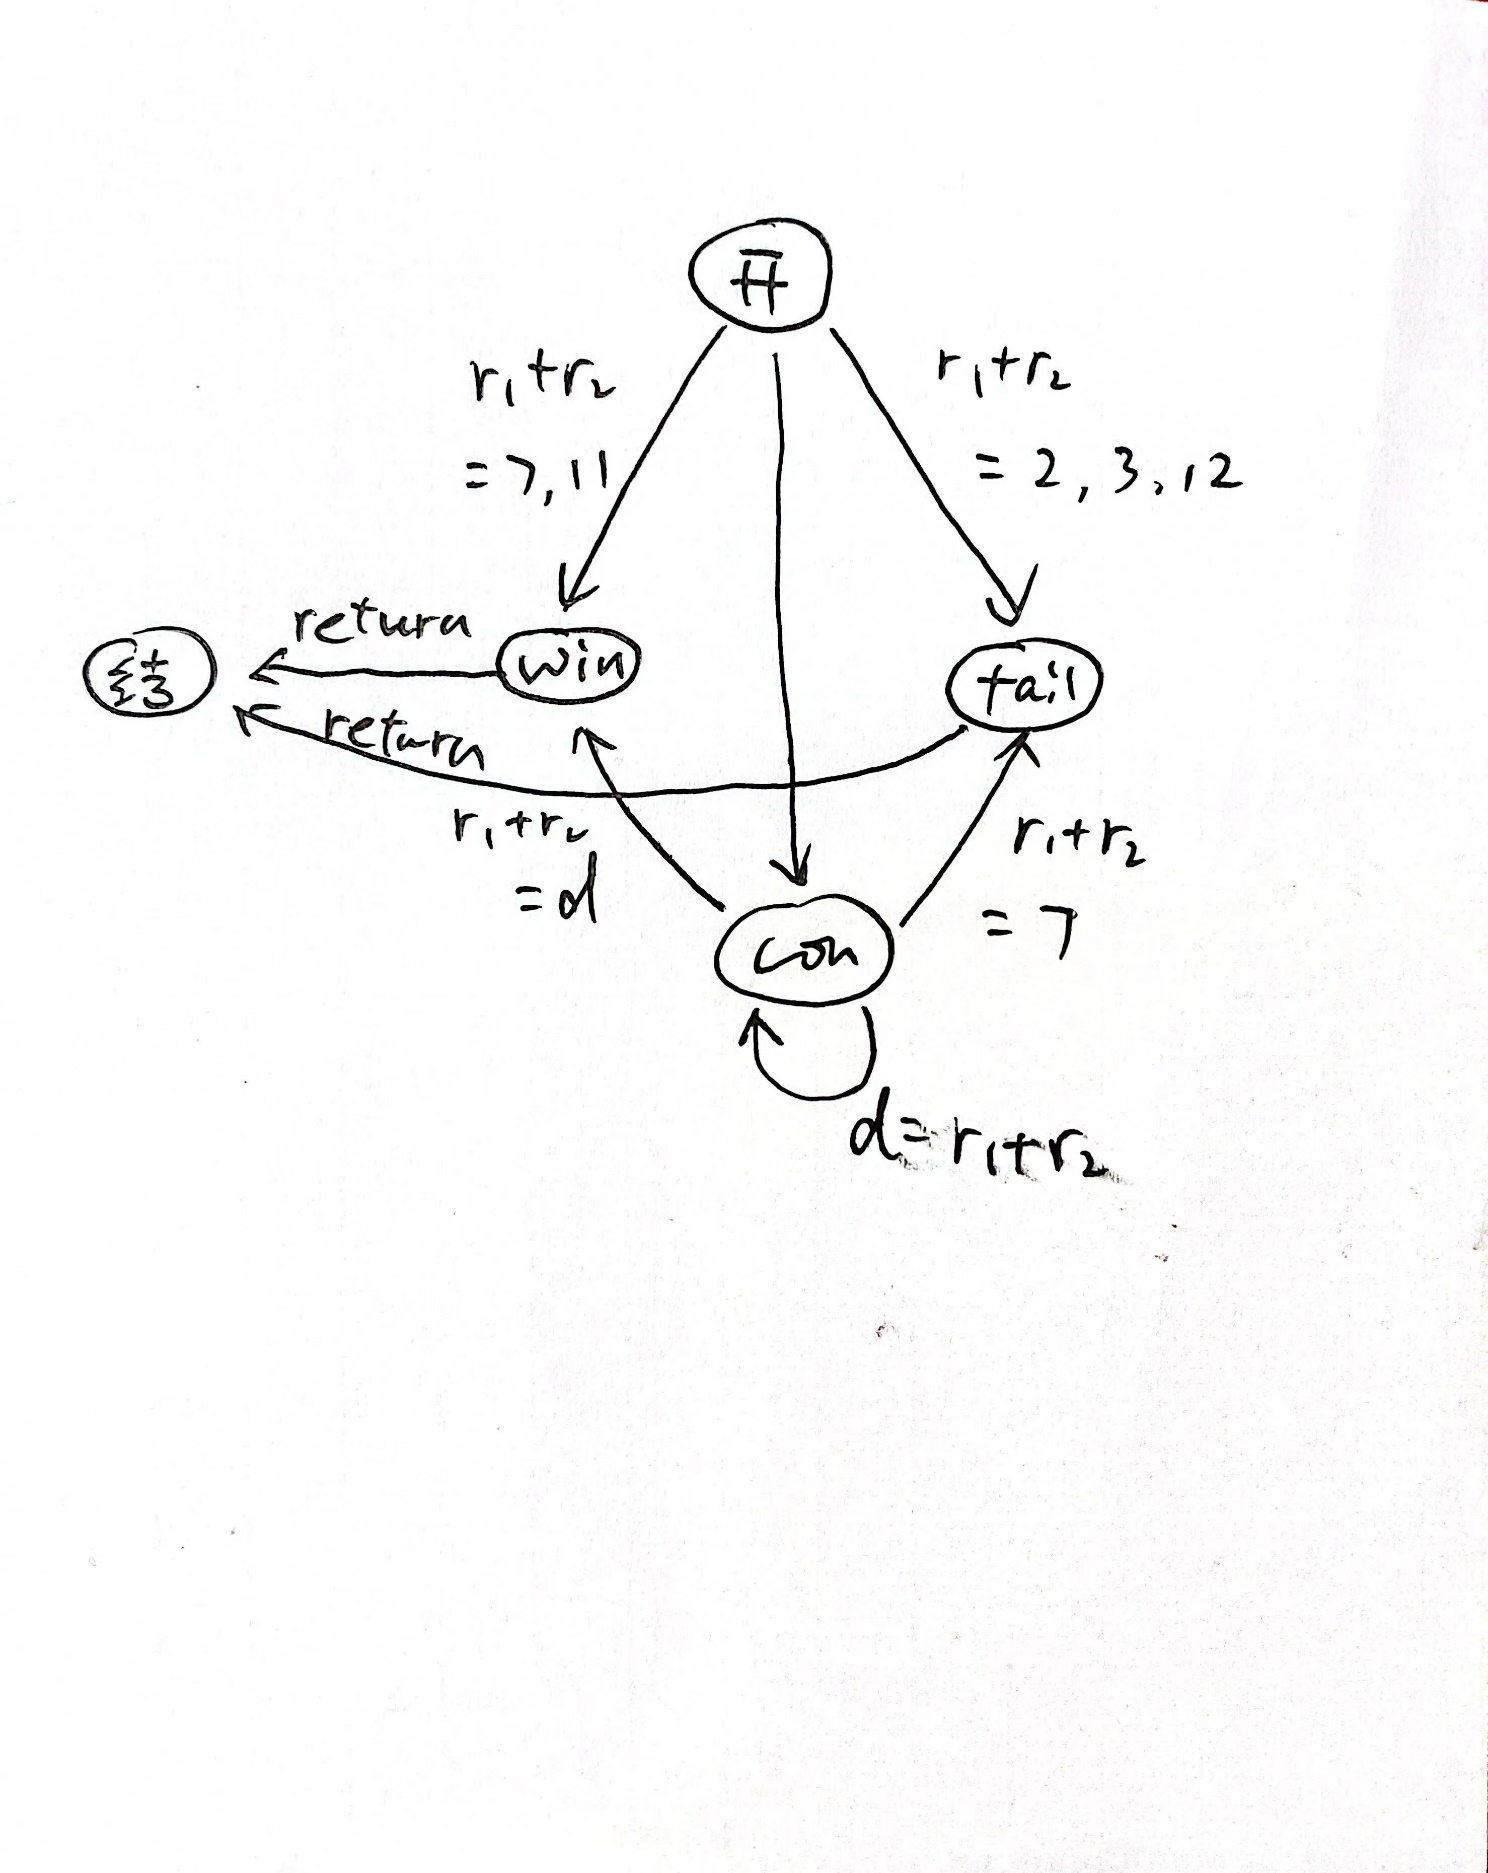 开
r₁+r₂
=7,11
r₁+r₂
=2,3,12
return
win
fail
结
return
r₁+r₂
=d
r₁+r₂
=7
con
d=r₁+r₂